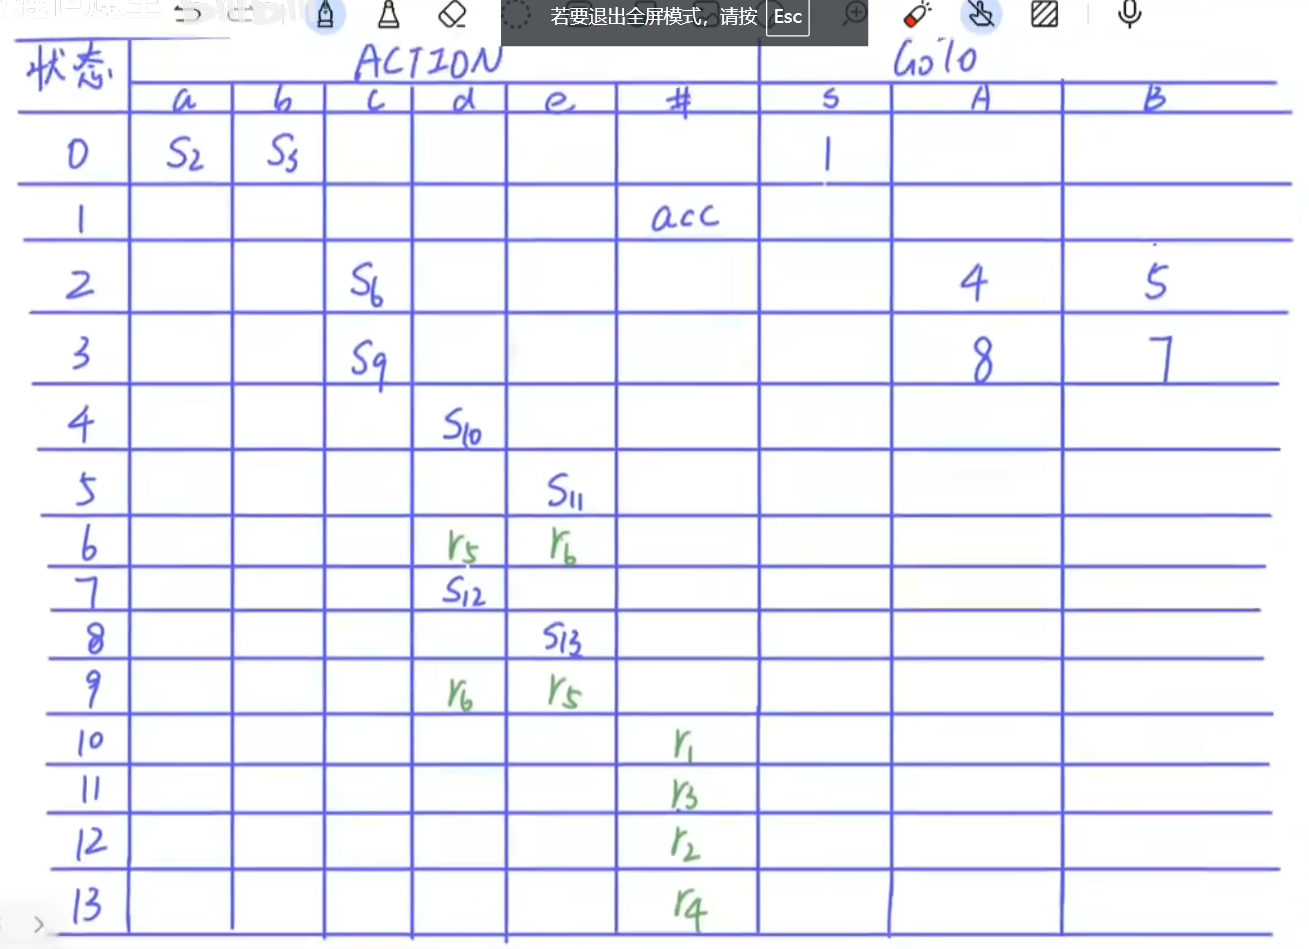 若要退出全屏模式，请按 Esc
状态 ACTION GOTO
a b c d e # S A B
0 S2 S3 1
1 acc
2 S6 4 5
3 S9 8 7
4 S10
5 S11
6 r5 r6
7 S12
8 S13
9 r6 r5
10 r1
11 r3
12 r2
13 r4